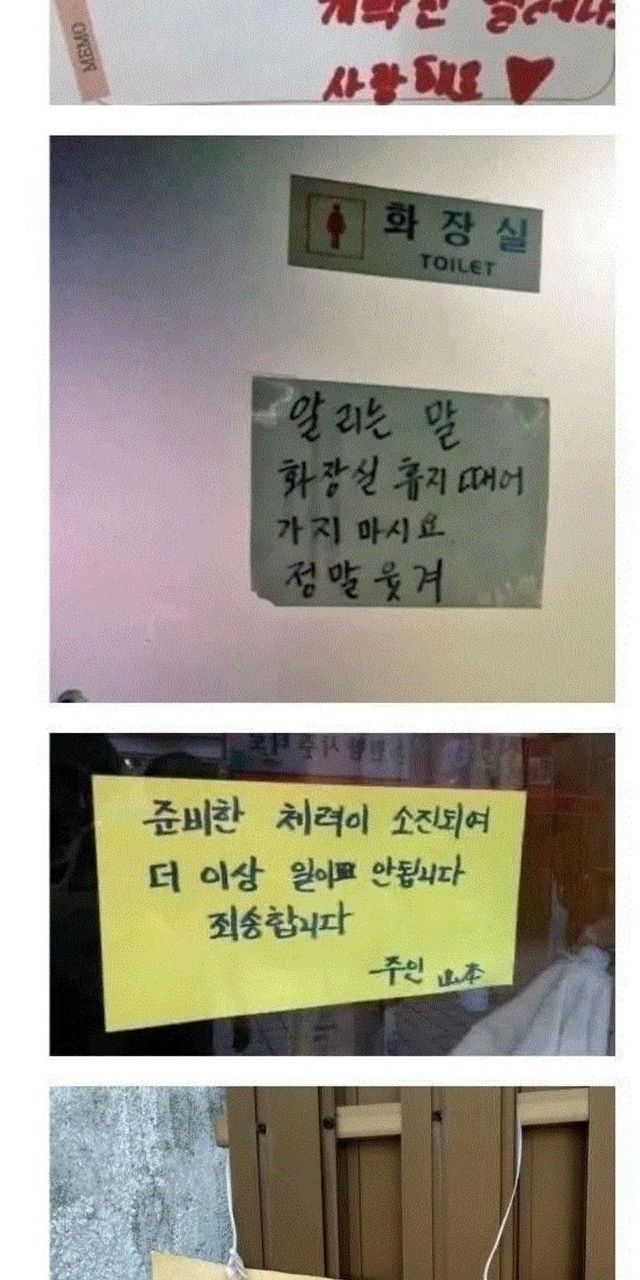 MEMO
화장실
TOILET
알리는 말
화장실 휴지 떼어
가지 마시요
정말 웃겨
준비한 체력이 소진되여
더 이상 일이 안됩니다
죄송합니다
주인 山本